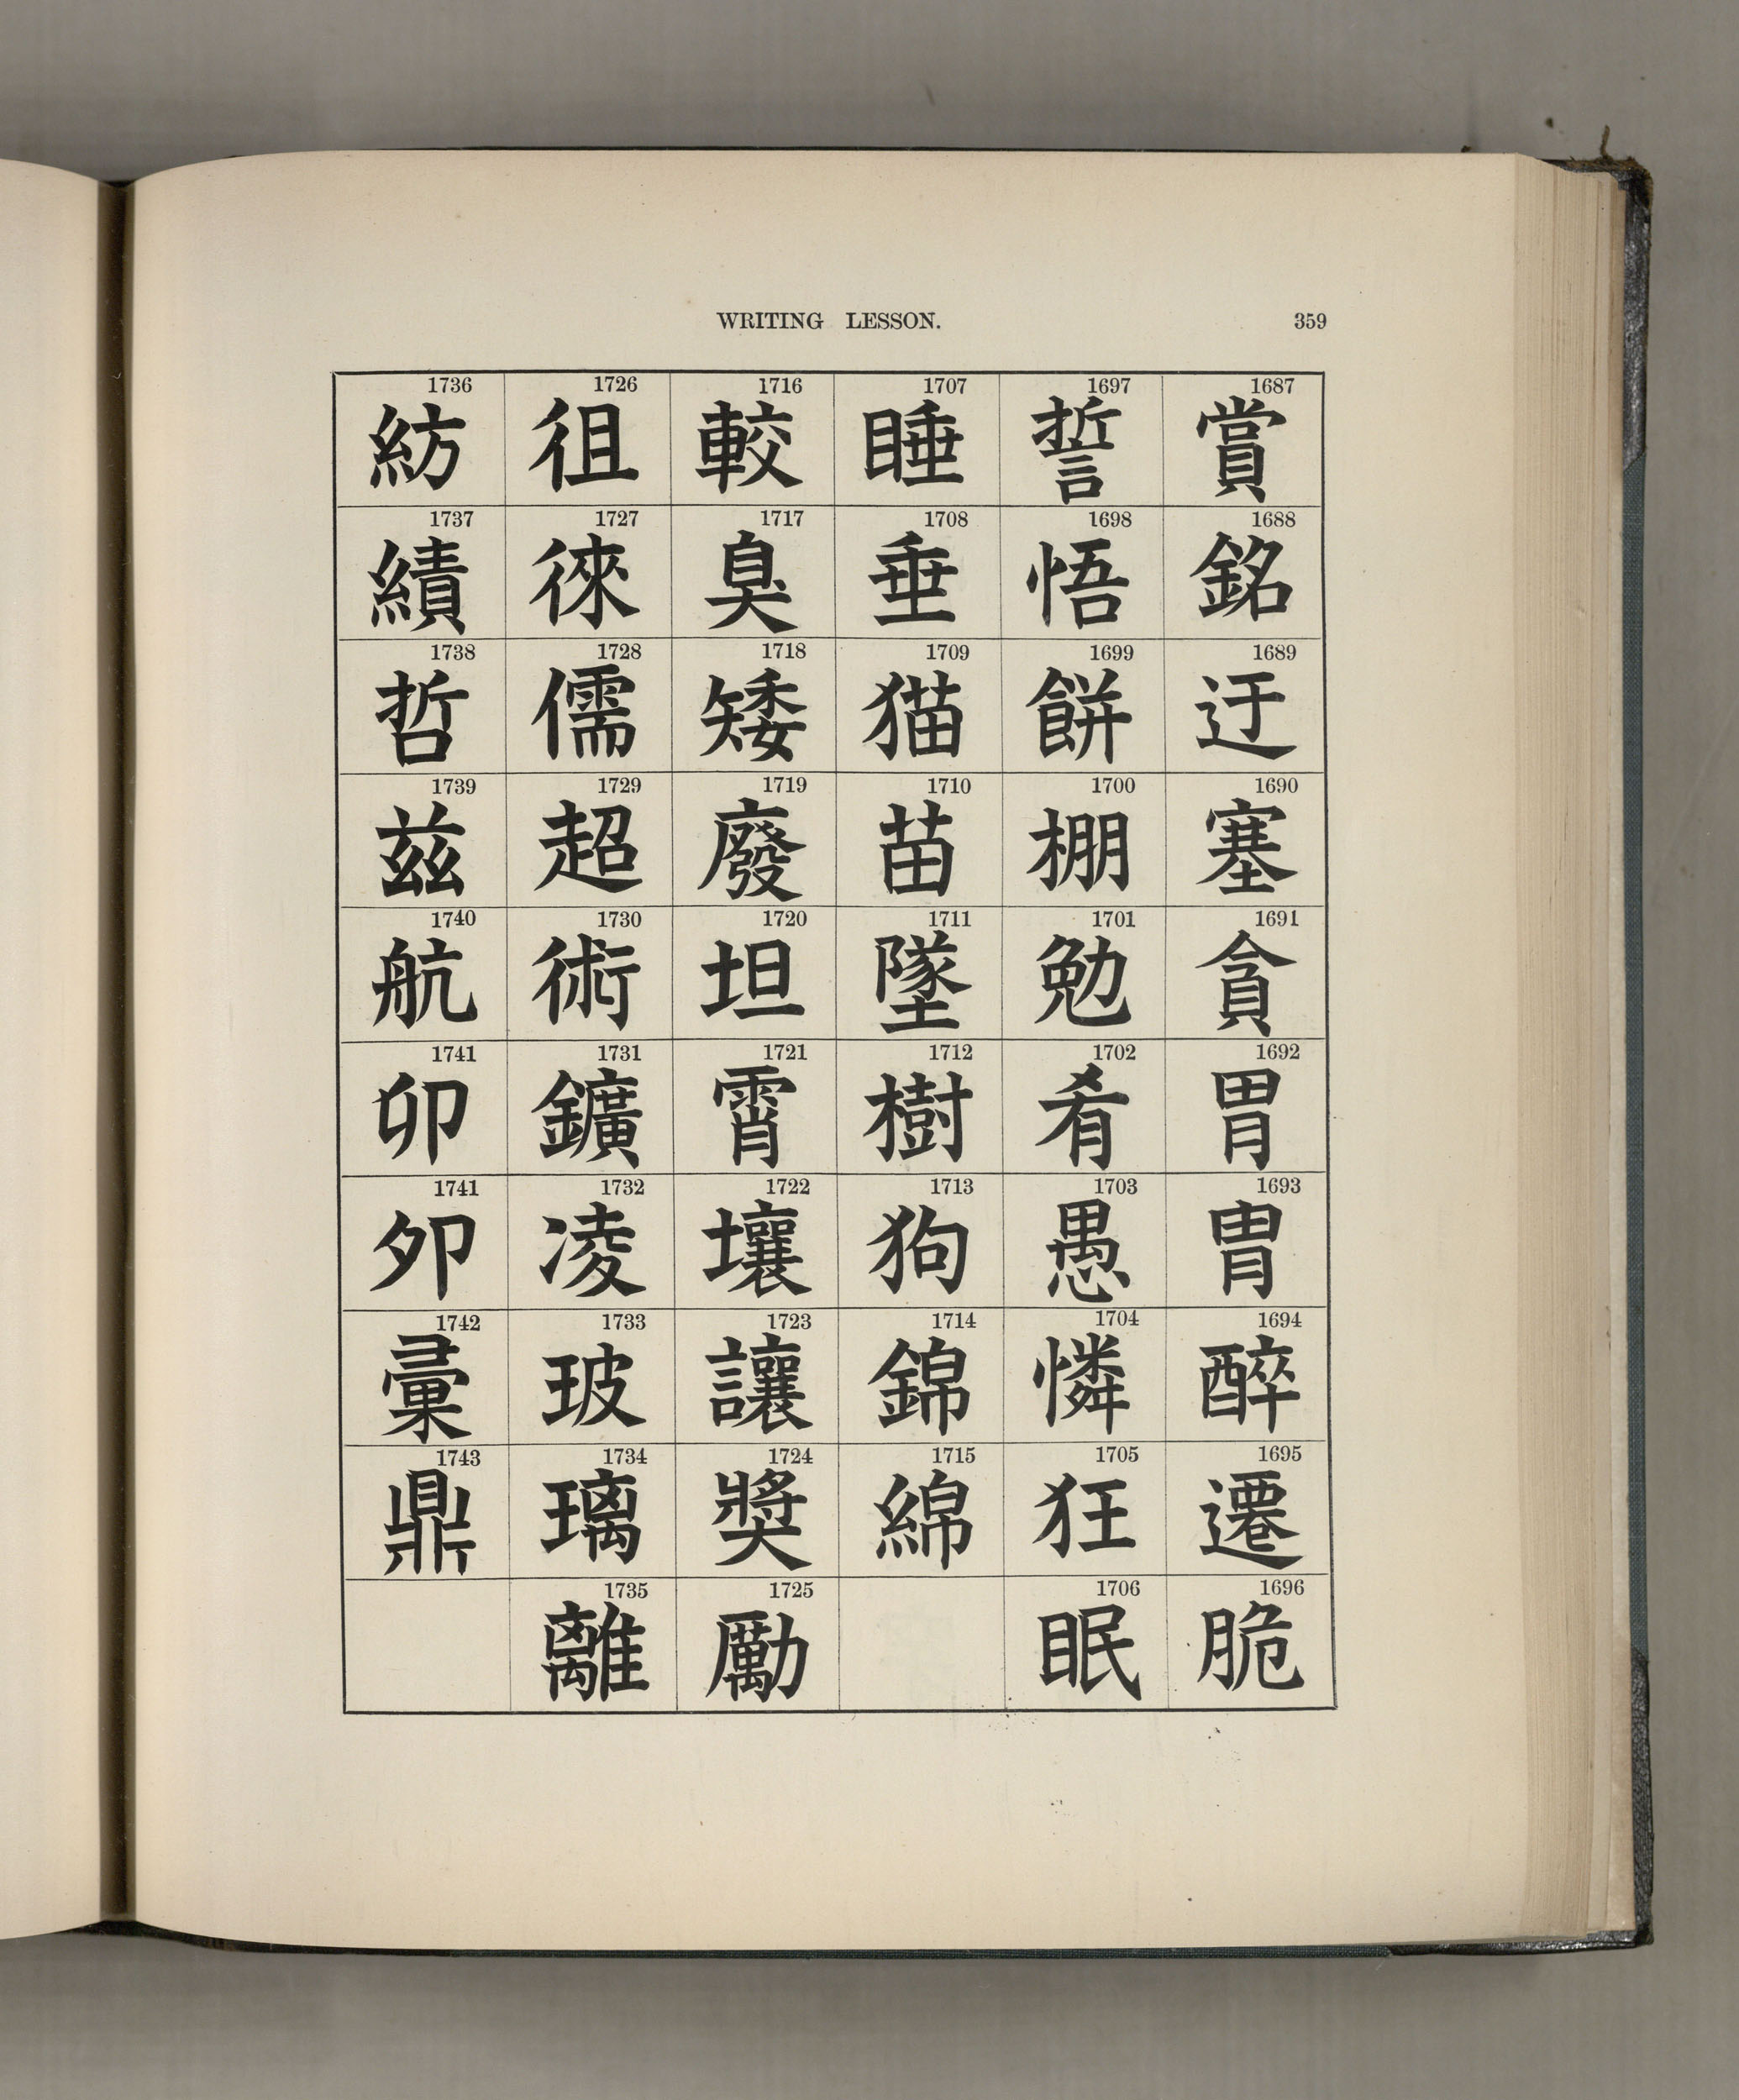 WRITING LESSON.
359
1687
賞
1688
銘
1689
迂
1690
塞
1691
貪
1692
胃
1693
胄
1694
醉
1695
遷
1696
脆
1697
誓
1698
悟
1699
餅
1700
棚
1701
勉
1702
肴
1703
愚
1704
憐
1705
狂
1706
眠
1707
睡
1708
垂
1709
猫
1710
苗
1711
墜
1712
樹
1713
狗
1714
錦
1715
綿
1716
較
1717
臭
1718
矮
1719
廢
1720
坦
1721
霄
1722
壤
1723
讓
1724
奬
1725
勵
1726
徂
1727
徠
1728
儒
1729
超
1730
術
1731
鑛
1732
凌
1733
玻
1734
璃
1735
離
1736
紡
1737
績
1738
哲
1739
茲
1740
航
1741
卯
1741
夘
1742
彙
1743
鼎